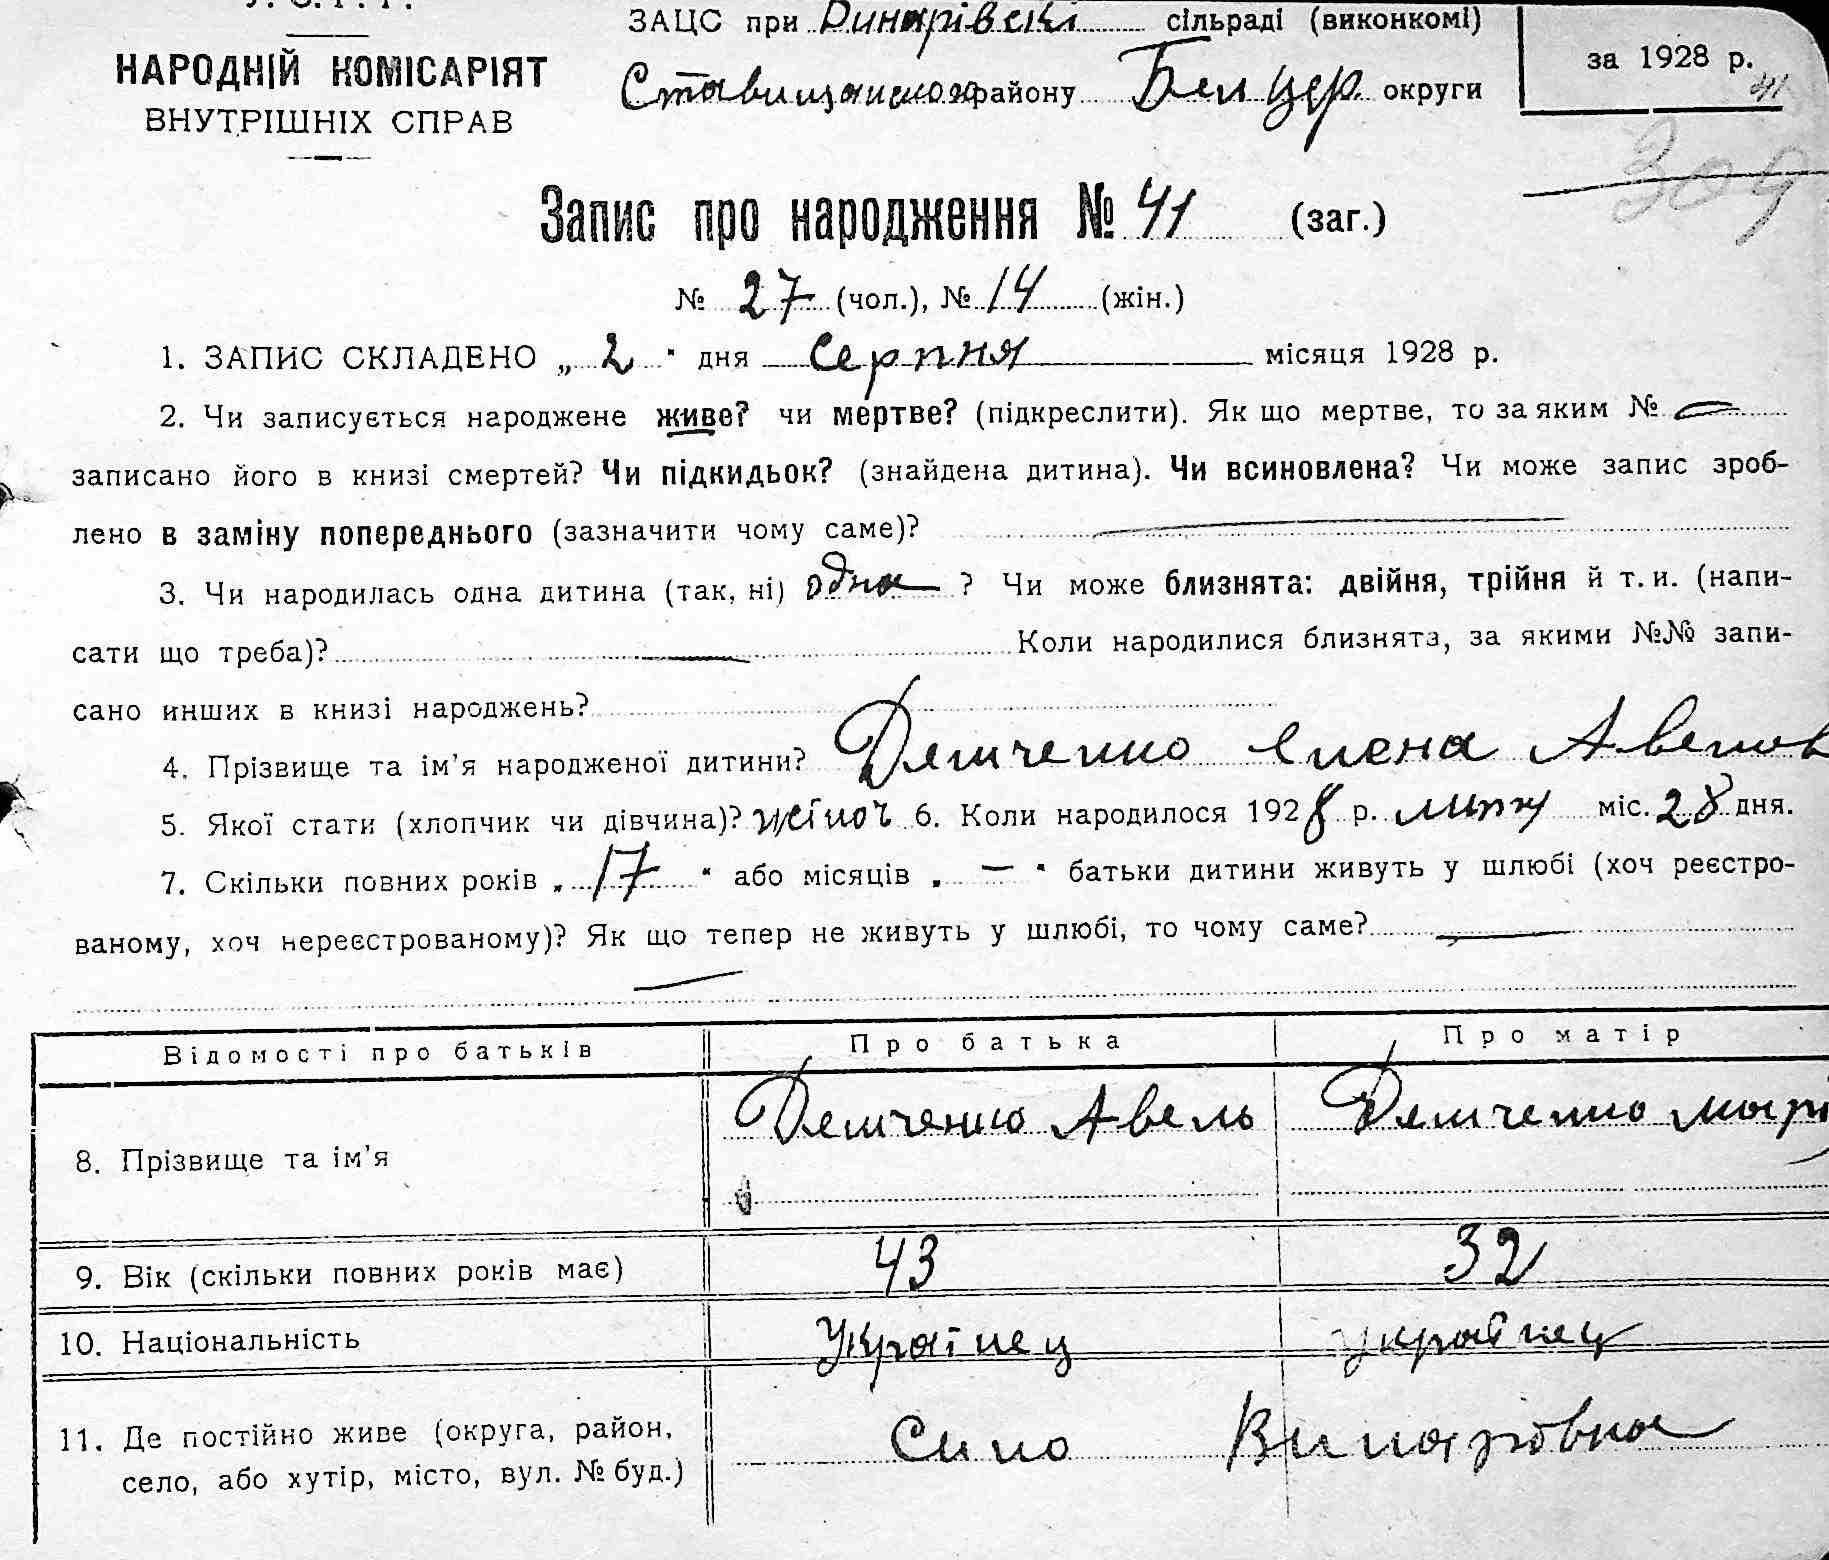 У.С.Р.Р.
НАРОДНІЙ КОМІСАРІЯТ
ВНУТРІШНІХ СПРАВ
ЗАЦС при Винарівскі сільраді (виконкомі)
Ставищанського району Бел Цер. округи
за 1928 р.
41
309
Запис про народження № 41 (заг.)
№ 27 (чол.), № 14 (жін.)
1. ЗАПИС СКЛАДЕНО „ 2 " дня серпня місяця 1928 р.
2. Чи записується народжене живе? чи мертве? (підкреслити). Як що мертве, то за яким №
записано його в книзі смертей? Чи підкидьок? (знайдена дитина). Чи всиновлена? Чи може запис зроб-
лено в заміну попереднього (зазначити чому саме)?
3. Чи народилась одна дитина (так, ні) одна ? Чи може близнята: двійня, трійня й т. и. (напи-
сати що треба)? Коли народилися близнята, за якими №№ запи-
сано инших в книзі народжень?
4. Прізвище та ім'я народженої дитини? Демченко Єлена Авелов
5. Якої стати (хлопчик чи дівчина)? жіноч 6. Коли народилося 1928 р. липня міс. 28 дня.
7. Скільки повних років „ 17 " або місяців „ — " батьки дитини живуть у шлюбі (хоч реєстро-
ваному, хоч нереєстрованому)? Як що тепер не живуть у шлюбі, то чому саме?
Відомості про батьків Про батька Про матір
8. Прізвище та ім'я Демченко Авель Демченко Марі
9. Вік (скільки повних років має) 43 32
10. Національність Українец українец
11. Де постійно живе (округа, район, село, або хутір, місто, вул. № буд.) Село Винарівка